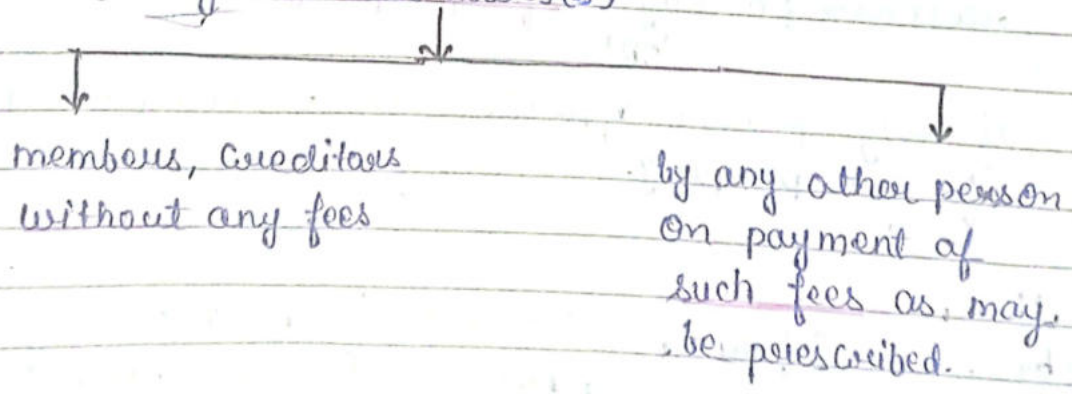 members, creditors
without any fees
by any other person
on payment of
such fees as may
be prescribed.